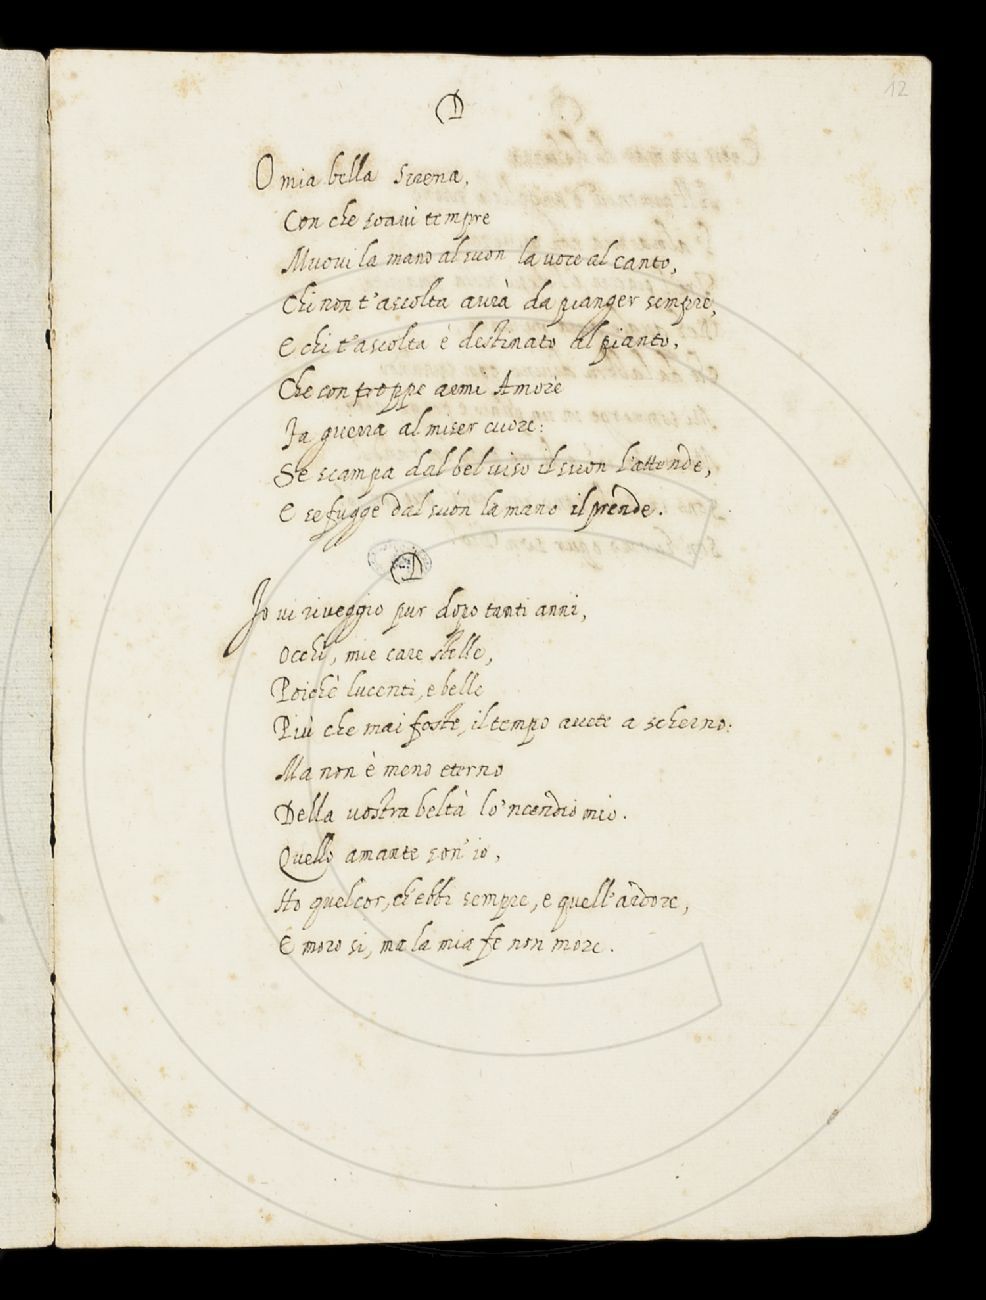 12
D
O mia bella Sirena,
Con che soavi tempre
Muovi la mano al suon la voce al canto,
Chi non t'ascolta avrà da pianger sempre,
E chi t'ascolta è destinato al pianto,
Che con troppe armi Amore
Fa guerra al miser cuore:
Se scampa dal bel viso il suon l'attende,
E se fugge dal suon la mano il prende.
D
Io vi riveggio pur dopo tanti anni,
Occhi, mie care stelle,
Poichè lucenti, e belle
Più che mai foste, il tempo avete a scherno:
Ma non è meno eterno
Della vostra beltà lo'ncendio mio.
Quello amante son' io,
Ho quel cor, ch'ebbi sempre, e quell'ardore,
E moro si, ma la mia fe non more.